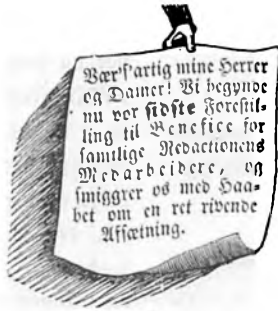 Vær's'artig mine Herrer
og Damer! Vi begynde
nu vor sidste Forestil-
ling til Benefice for
samtlige Redactionens
Medarbeidere, og
smiggrer os med Haa-
bet om en ret rivende
Afsætning.